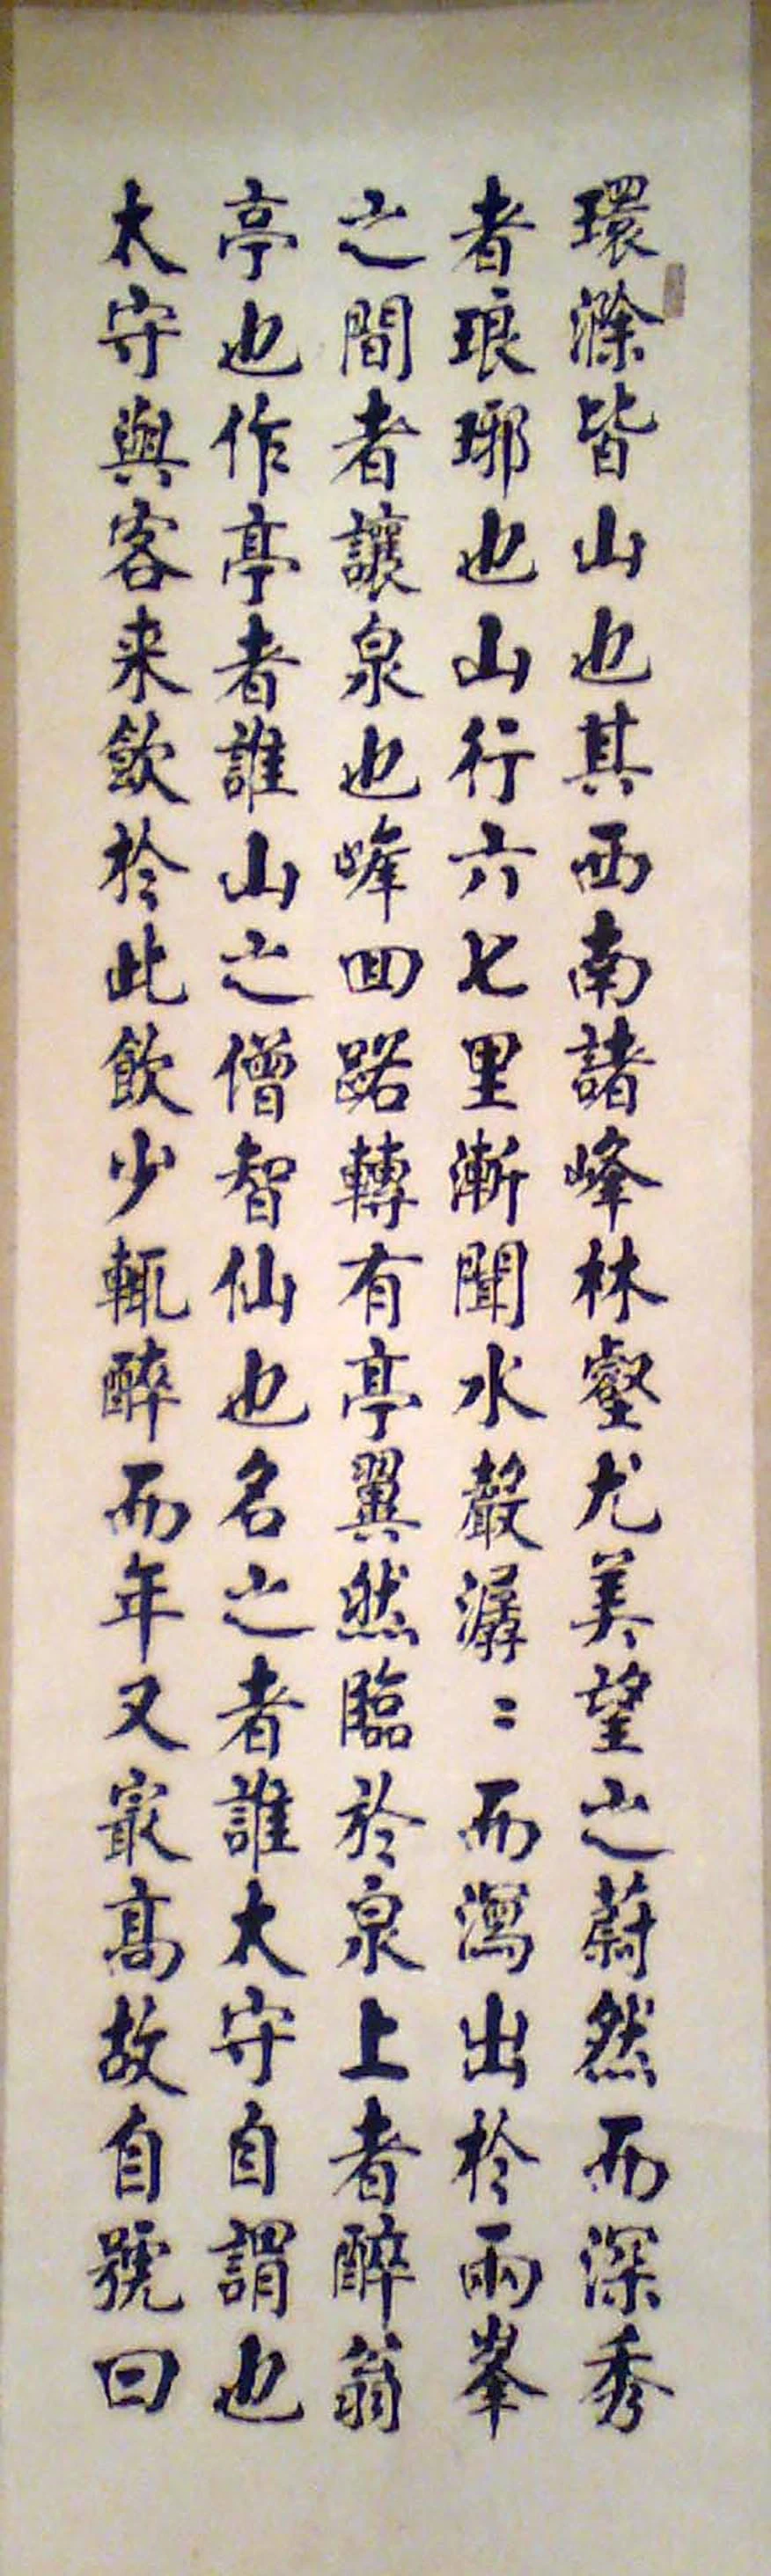 環滁皆山也其西南諸峰林壑尤美望之蔚然而深秀
者琅琊也山行六七里漸聞水聲潺〻而瀉出於兩峯
之間者讓泉也峰回路轉有亭翼然臨於泉上者醉翁
亭也作亭者誰山之僧智仙也名之者誰太守自謂也
太守與客来飲於此飲少輒醉而年又最高故自號曰